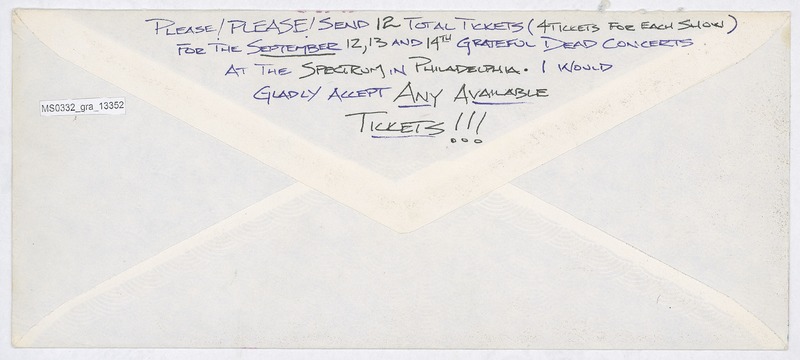 PLEASE! PLEASE! SEND 12 TOTAL TICKETS (4 TICKETS FOR EACH SHOW)
FOR THE SEPTEMBER 12, 13 AND 14TH GRATEFUL DEAD CONCERTS
AT THE SPECTRUM IN PHILADELPHIA. I WOULD
GLADLY ACCEPT ANY AVAILABLE
TICKETS!!!
MS0332_gra_13352